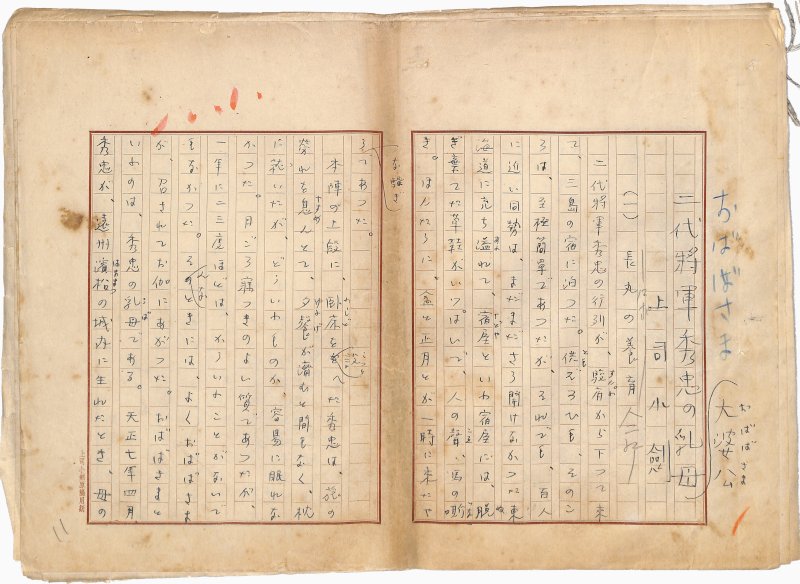 おばばさま
大婆公
おばばさま
二代將軍秀忠の乳母
上司小劍
(一) 長丸の養育
二代將軍秀忠の行列が、駿府から下つて来
て、三島の宿に泊つた。供ぞろひも、そのこ
ろは、至極簡單であつたが、それでも、百人
に近い同勢は、まだまださう開けなかつた東
海道に立ち溢れて、宿屋といわ宿屋には、脱
ぎ棄てた草鞋がいつぱいで、人の聲、馬の嘶
き。ほんたうに、盆と正月とが一時に来たや
な騒ぎ
うであつた。
本陣の上段に、臥床を設へた秀忠は、旅の
勞れを息んとて、夕餐が濟むと間もなく、枕
に就いたが、どういわものか、容易に眠れな
かつた。日ごろ寢つきのよい質であつたが、
一年に二三度ほどは、かういわことがないで
もなかつた。そんなときには、よくおばばさま
が、召されてお伽にあがつた。おばばさまと
いわのは、秀忠の乳母である。天正七年四月
秀忠が、遠州濱松の城内に生れたとき、母の
上司小劍原稿用紙
11